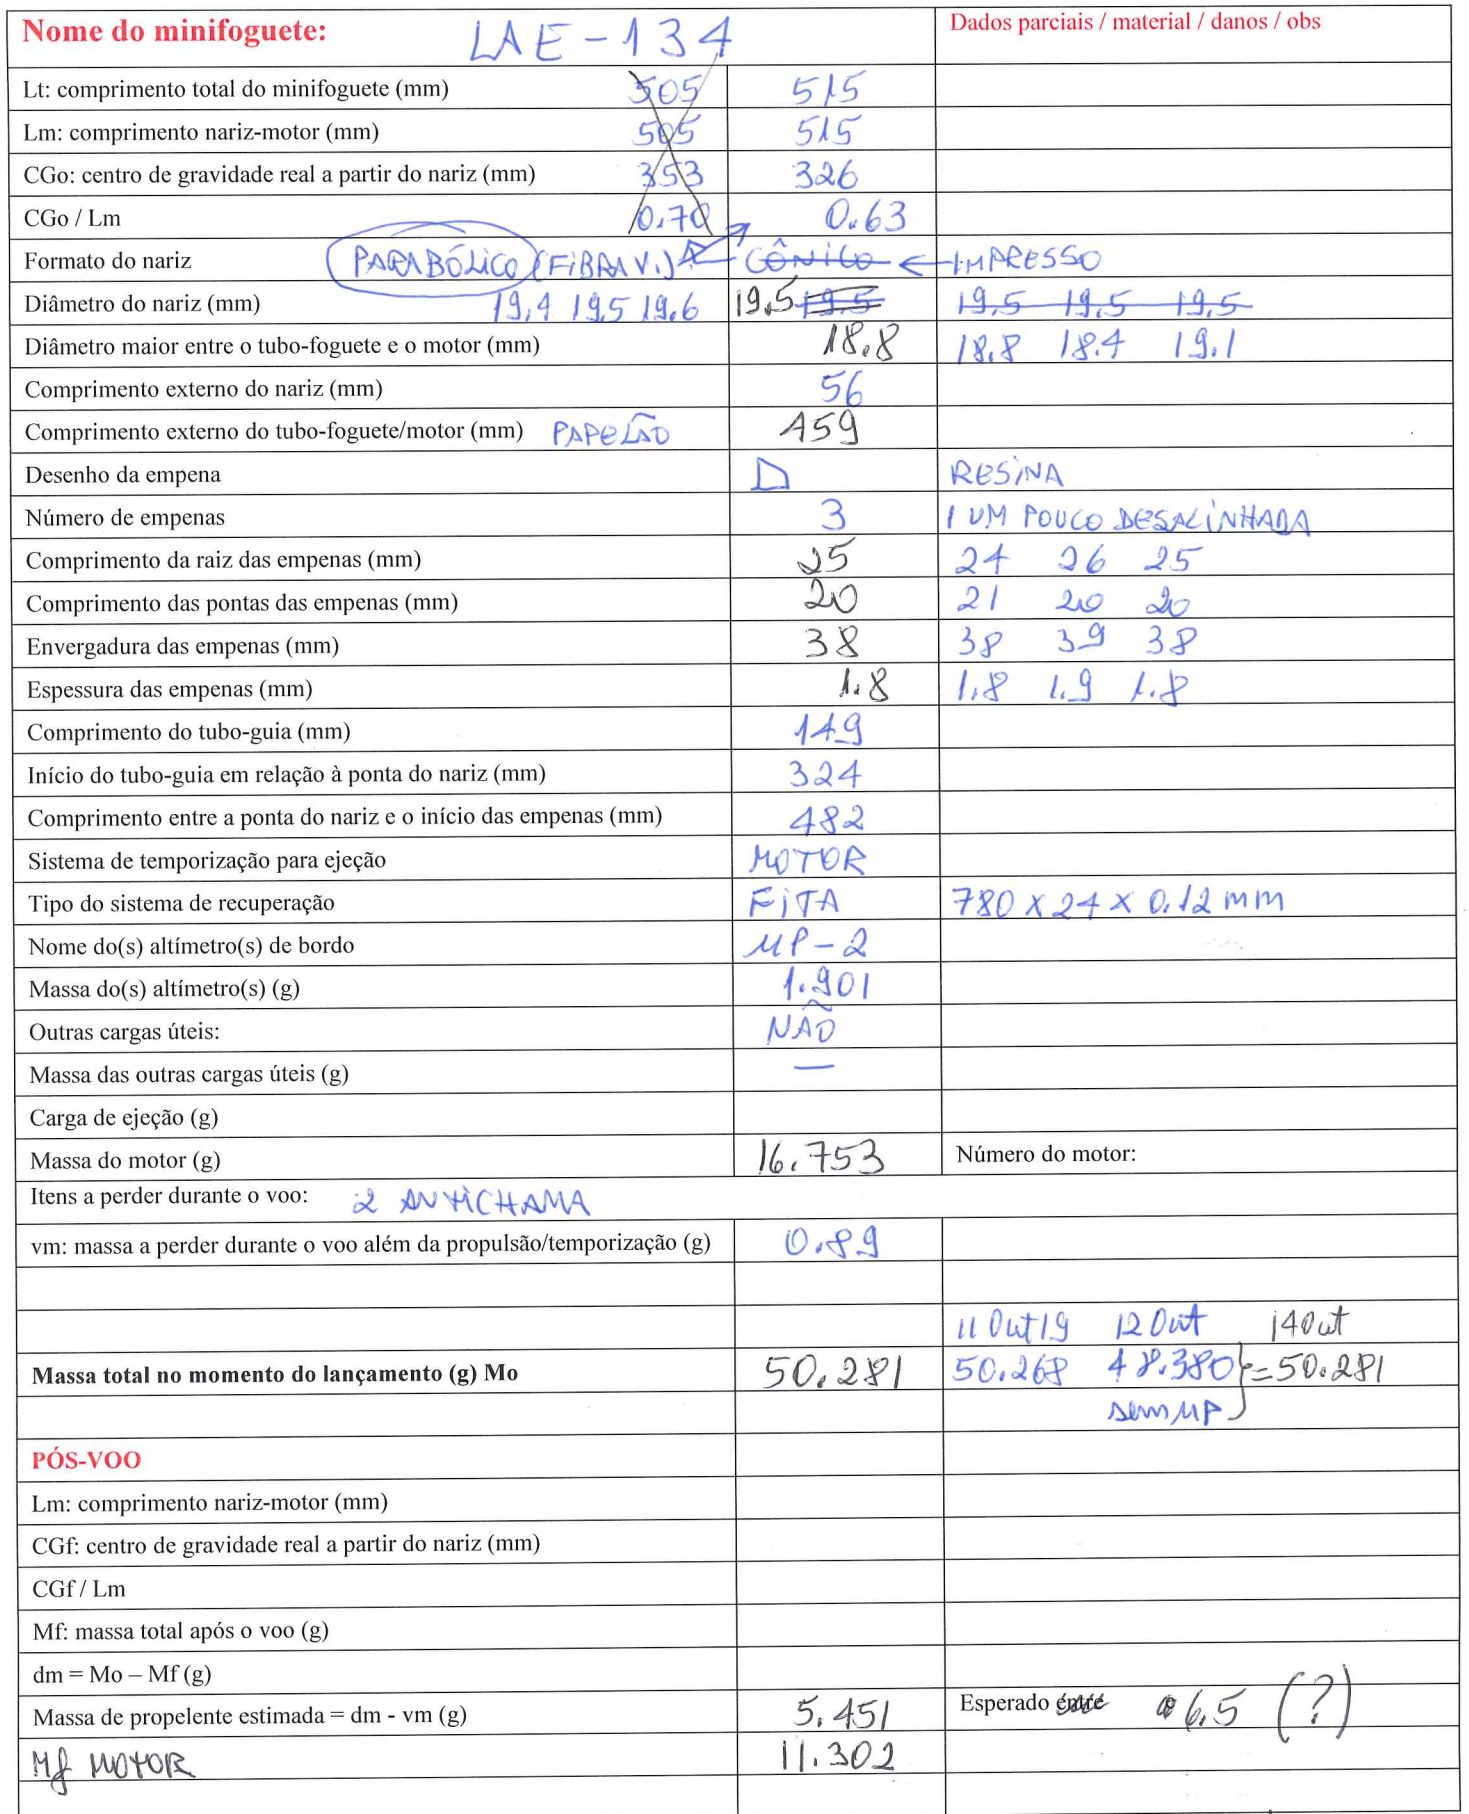 Nome do minifoguete: LAE-134 Dados parciais / material / danos / obs
Lt: comprimento total do minifoguete (mm) 505 515
Lm: comprimento nariz-motor (mm) 505 515
CGo: centro de gravidade real a partir do nariz (mm) 353 326
CGo / Lm 0.70 0.63
Formato do nariz PARABÓLICO (FIBRA V.) CÔNICO ← IMPRESSO
Diâmetro do nariz (mm) 19,4 19,5 19,6 19.5 19.5 19.5 19,5 19,5
Diâmetro maior entre o tubo-foguete e o motor (mm) 18.8 18.8 18.4 19.1
Comprimento externo do nariz (mm) 56
Comprimento externo do tubo-foguete/motor (mm) PAPELÃO 459
Desenho da empena RESINA
Número de empenas 3 1 UM POUCO DESALINHADA
Comprimento da raiz das empenas (mm) 25 24 26 25
Comprimento das pontas das empenas (mm) 20 21 20 20
Envergadura das empenas (mm) 38 38 39 38
Espessura das empenas (mm) 1.8 1.8 1.9 1.8
Comprimento do tubo-guia (mm) 149
Início do tubo-guia em relação à ponta do nariz (mm) 324
Comprimento entre a ponta do nariz e o início das empenas (mm) 482
Sistema de temporização para ejeção MOTOR
Tipo do sistema de recuperação FITA 780 X 24 X 0.12 mm
Nome do(s) altímetro(s) de bordo MP-2
Massa do(s) altímetro(s) (g) 1.901
Outras cargas úteis: NÃO
Massa das outras cargas úteis (g) —
Carga de ejeção (g)
Massa do motor (g) 16.753 Número do motor:
Itens a perder durante o voo: 2 ANTICHAMA
vm: massa a perder durante o voo além da propulsão/temporização (g) 0.89
11 Out 19 12 Out 14 Out
Massa total no momento do lançamento (g) Mo 50.281 50.268 48.380 } = 50.281
sem MP
PÓS-VOO
Lm: comprimento nariz-motor (mm)
CGf: centro de gravidade real a partir do nariz (mm)
CGf / Lm
Mf: massa total após o voo (g)
dm = Mo – Mf (g)
Massa de propelente estimada = dm - vm (g) 5.451 Esperado entre 6.5 (?)
Mf MOTOR 11.302